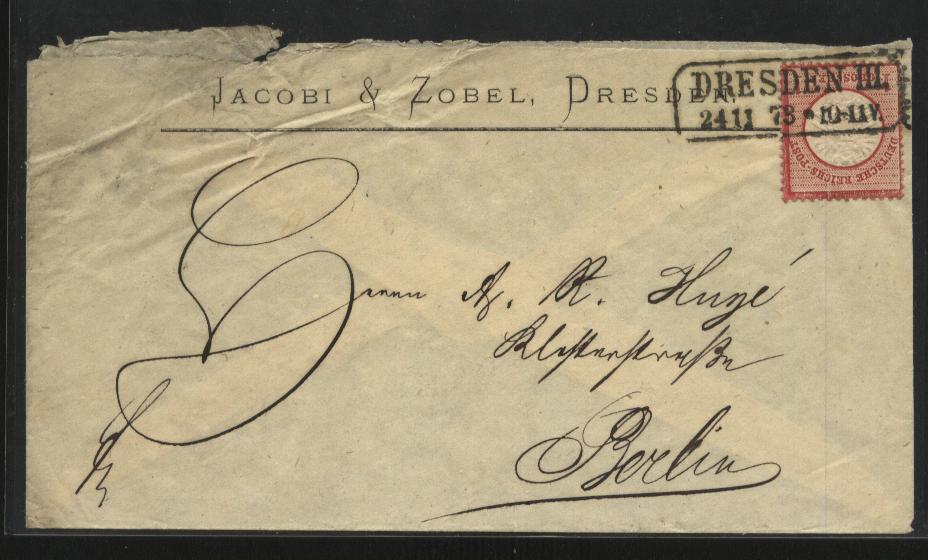 JACOBI & ZOBEL, DRESDEN.
DRESDEN III.
24 11 73 * 10-11V.
DEUTSCHE REICHS-POST
Herrn A. R. Hugé
Klosterstraße
Berlin